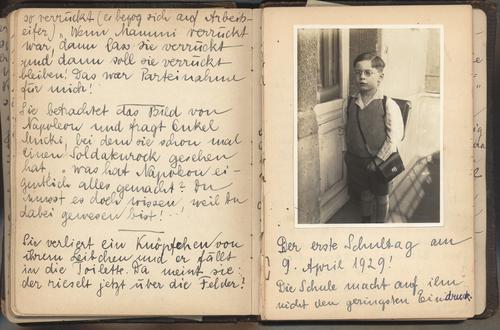 so verrückt (er bezog sich auf Arbeits-
eifer) „Wenn Mammi verrückt
war, dann lass sie verrückt
und dann soll sie verrückt
bleiben! Das war Parteinahme
für mich!
Sie betrachtet das Bild von
Napoleon und fragt Onkel
Mucki, bei dem sie schon mal
einen Soldatenrock gesehen
hat „Was hat Napoleon ei-
gentlich alles gemacht? Du
musst es doch wissen, weil Du
dabei gewesen bist!
Sie verliert ein Knöpfchen von
ihrem Leibchen und er fällt
in die Toilette. Da meint sie:
der rieselt jetzt über die Felder!
Der erste Schultag am
9. April 1929!
Die Schule macht auf ihn
nicht den geringsten Eindruck.